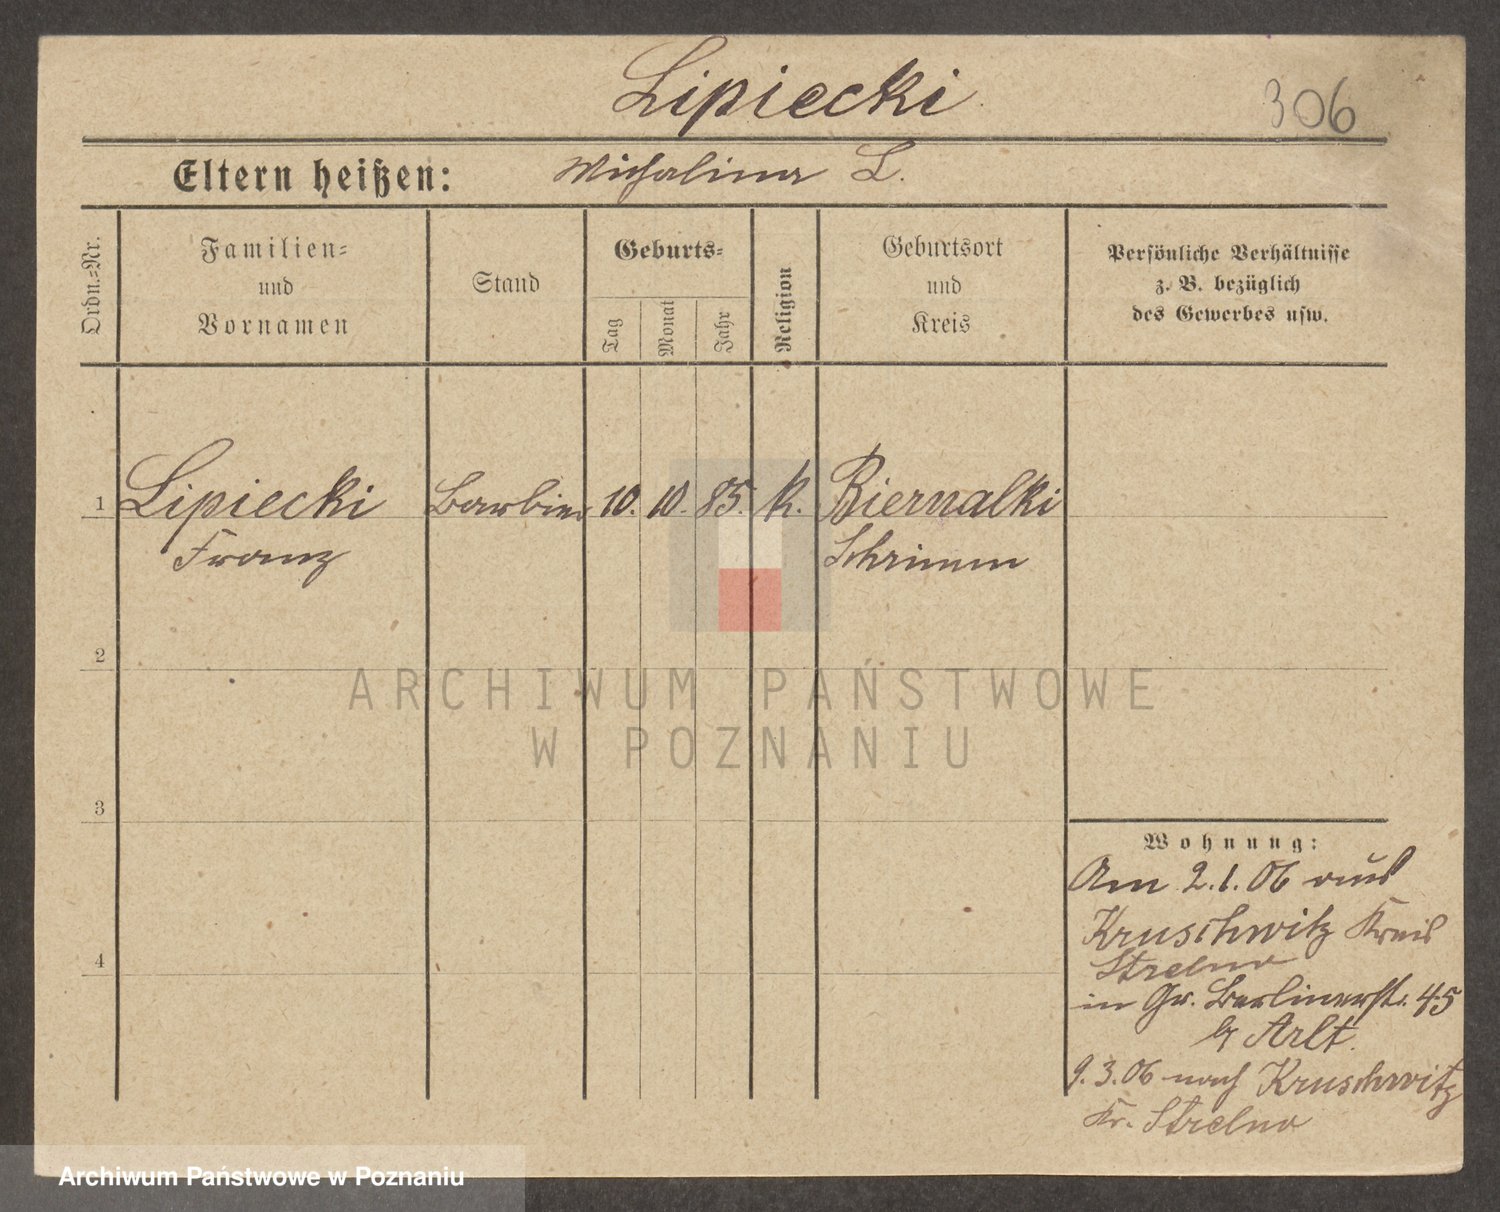 Lipiecki
306
Eltern heißen: Michalina L.
Ordn.-Nr.
Familien-
und
Vornamen
Stand
Geburts-
Tag
Monat
Jahr
Religion
Geburtsort
und
Kreis
Persönliche Verhältnisse
z. B. bezüglich
des Gewerbes usw.
1 Lipiecki Barbier 10. 10. 85. k. Biernatki
Franz Schrimm
2
3
4
Wohnung:
Am 2.1.06 aus
Kruschwitz Kreis
Strelno
in Gr. Berlinerstr. 45
b/ Arlt.
9.3.06 nach Kruschwitz
Kr. Strelno
ARCHIWUM PAŃSTWOWE
W POZNANIU
Archiwum Państwowe w Poznaniu